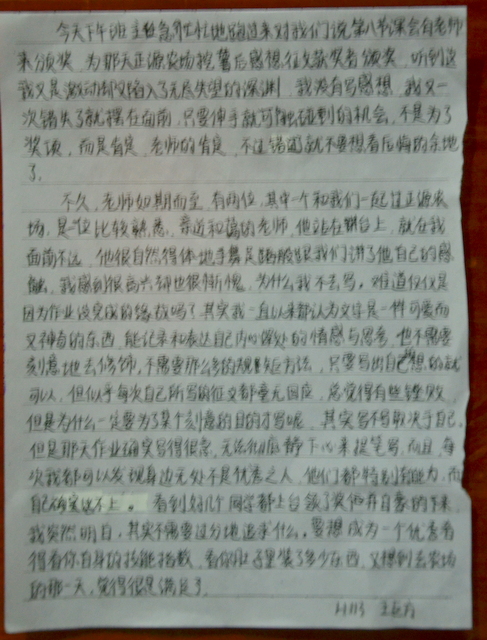 今天下午班主任急急忙忙地跑过来对我们说第八节课会有老师
来颁奖，为那天正源农场挖薯后感想征文获奖者颁奖，听到这
我又是激动却又陷入了无尽失望的深渊，我没有写感想，我又一
次错失了就摆在面前，只要伸手就可触碰到的机会，不是为了
奖项，而是肯定，老师的肯定，不过错过就不要想着后悔的余地
了。
不久，老师如期而至，有两位，其中一个和我们一起过正源农
场，是一位比较熟悉，亲近和蔼的老师，他站在讲台上，就在我
面前不远，他很自然得体地手舞足蹈般跟我们讲了他自己的感
触，我感到很高兴却也很惭愧，为什么我不去写，难道仅仅是
因为作业没完成的缘故吗？其实我一直以来都认为文字是一件可爱而
又神奇的东西，能记录和表达自己内心深处的情感与思考，也不需要
刻意地去修饰，不需要那么多的规矩方法，只要写出自己想的就
可以，但似乎每次自己所写的征文都毫无回应，总觉得有些挫败，
但是为什么一定要为了某个刻意的目的才写呢，其实写不写取决于自己，
但是那天作业确实写得很急，无法彻底静下心来提笔写，而且，每
次我都可以发现身边无处不是优秀之人，他们都特别有能力，而
自己确实比不上。看到好几个同学都上台领了奖他弃自豪的下来
我突然明白，其实不需要过分地追求什么，要想成为一个优秀者
得看你自身的技能指数，看你肚子里装了多少东西，又想到去农场
的那一天，觉得很是满足了。